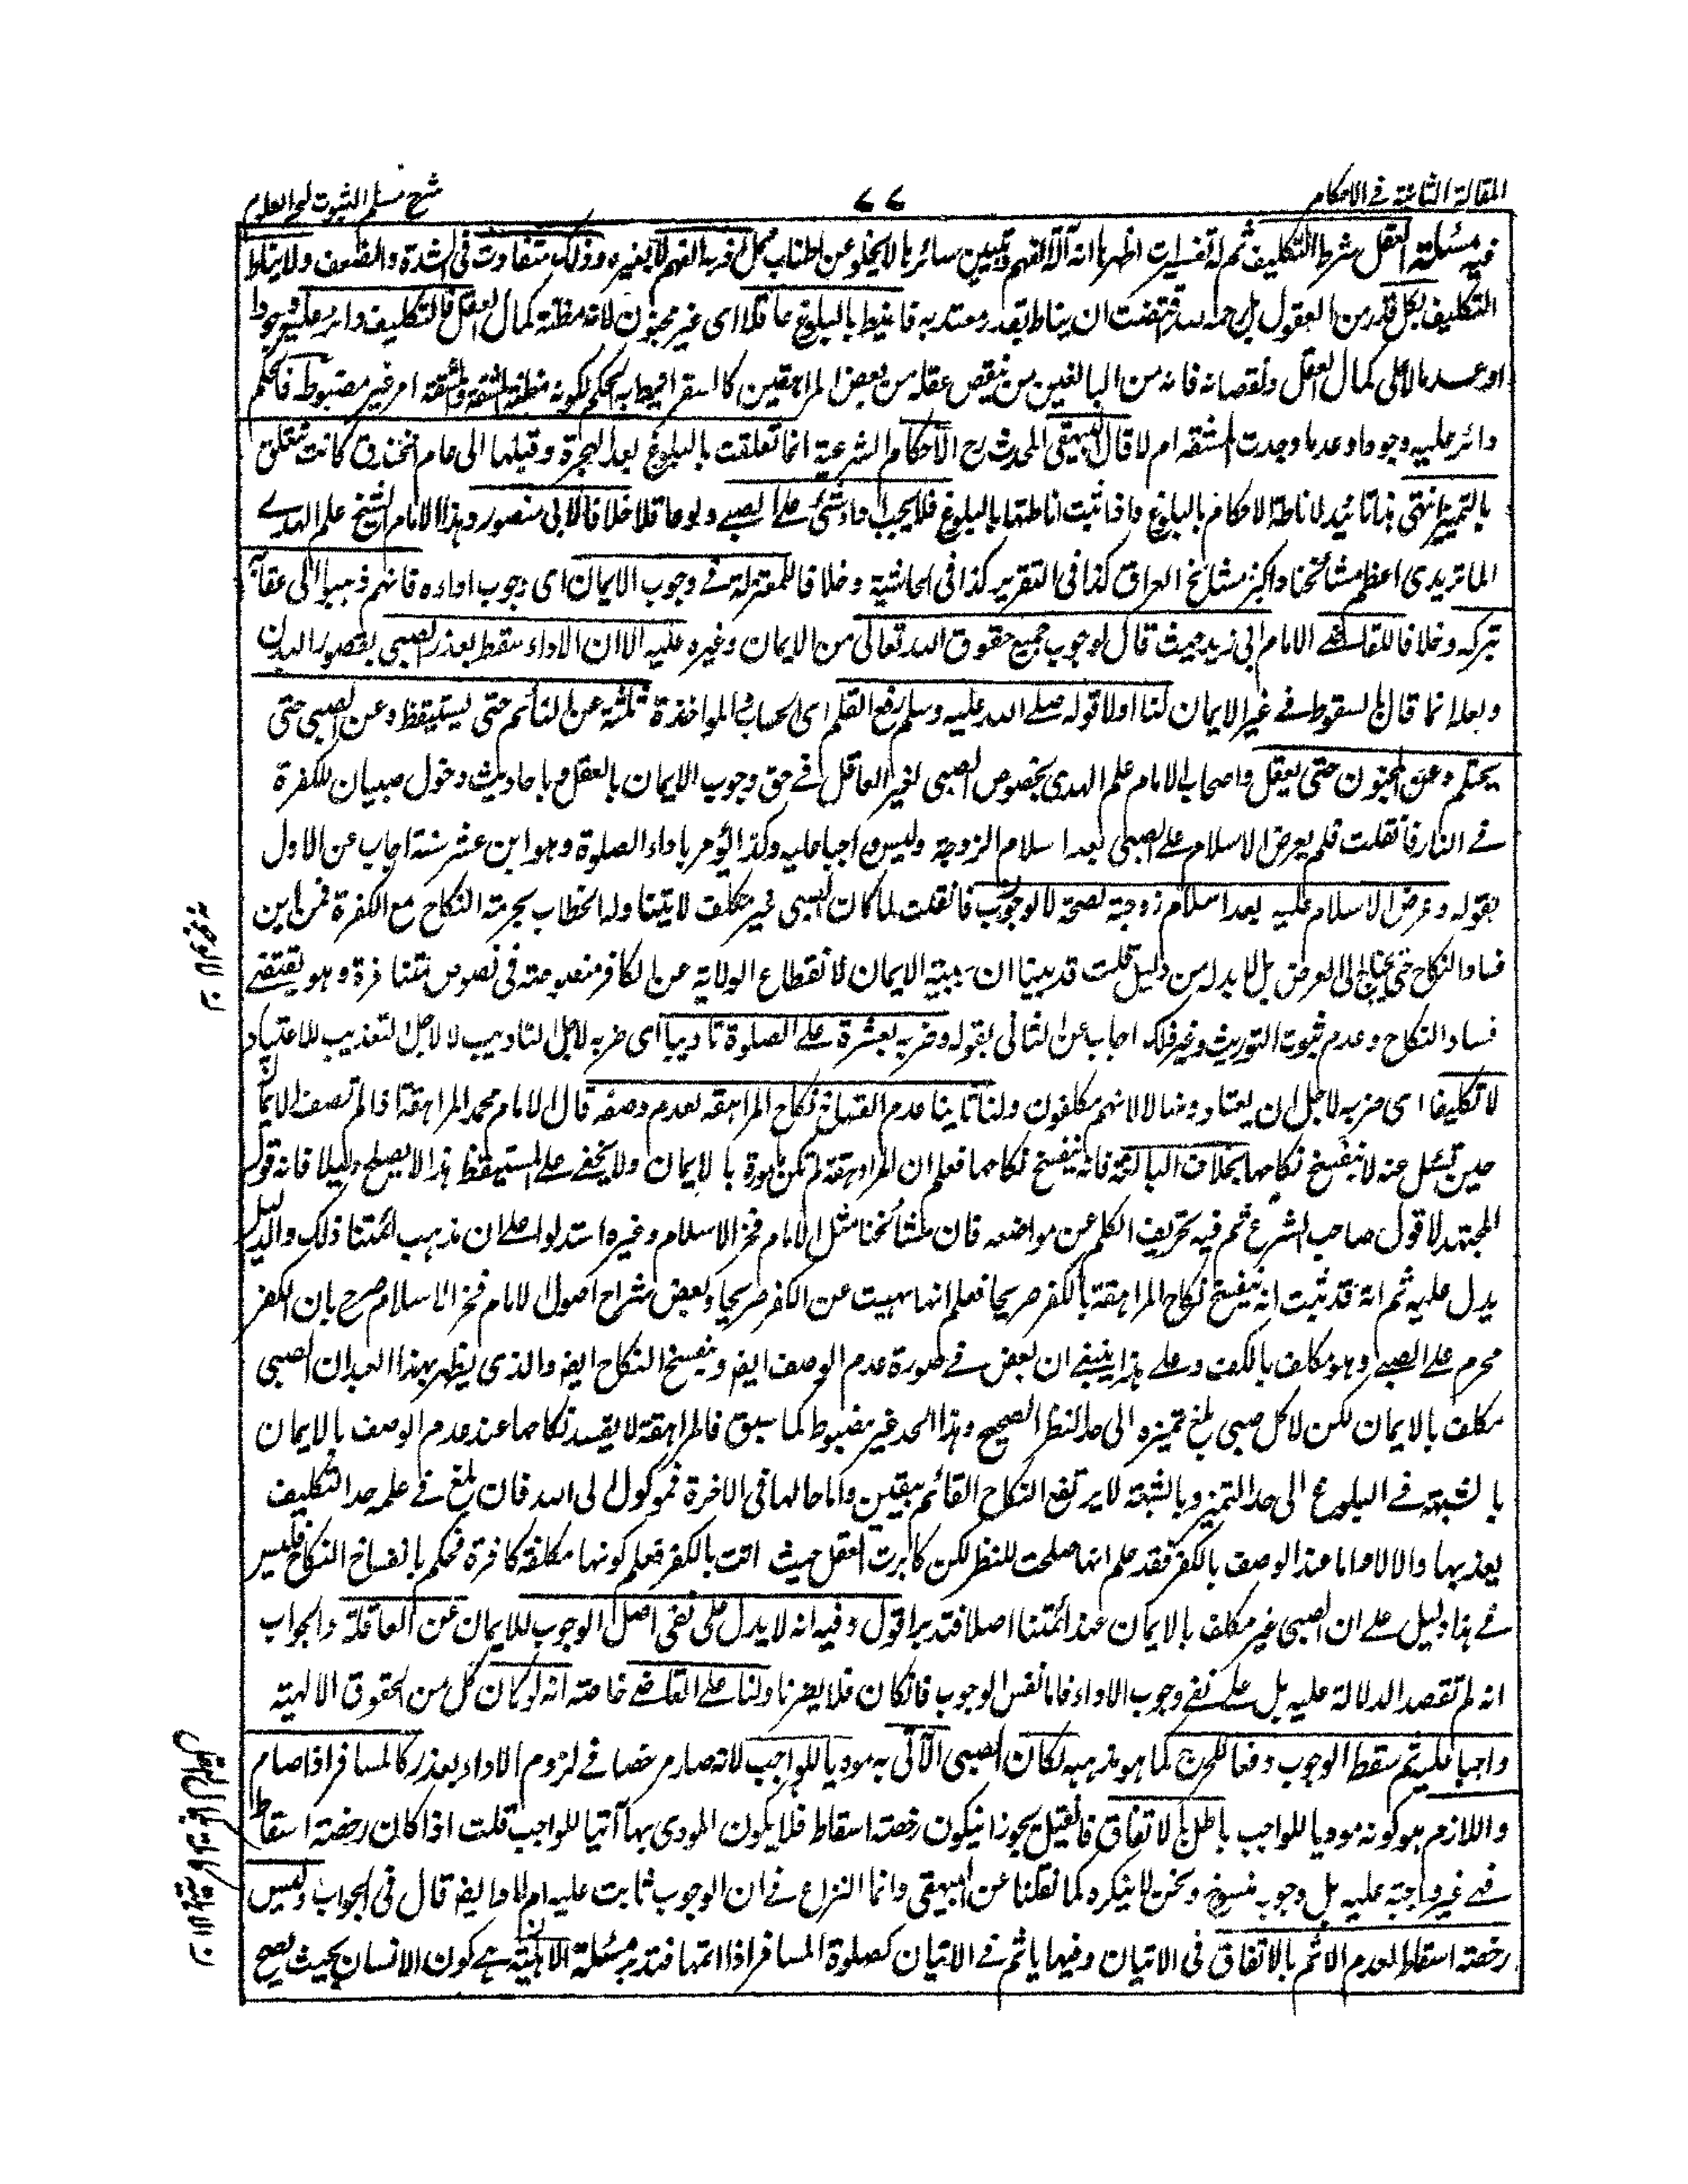 المقالة الثانية في الاحكام
٧٧
شرح مسلم الثبوت لبحر العلوم
فيه مسئلة العقل شرط التكليف ثم له تفسيرات اظهرها انه آلة الفهم وتبيين سائرها لا يخلو عن اطناب ممل اذ به الفهم لا بغيره وذلك متفاوت في الشدة والضعف ولا يناط
التكليف بكل قدر من العقول بل رحمة الله اقتضت ان يناط بقدر معتد به فانيط بالبلوغ عاقلا اى غير مجنون لانه مظنة كمال العقل فالتكليف دائر عليه وجودا
او عدما لا على كمال العقل ونقصانه فانه من البالغين من ينقص عقله من بعض المراهقين كالسفر انيط به الحكم لكونه مظنة المشقة والمشقة امر غير مضبوط فالحكم
دائر عليه وجودا وعدما وجدت المشقة ام لا قال البيهقى المحدث رح الاحكام الشرعية انما تعلقت بالبلوغ بعد الهجرة وقبلها الى عام الخندق كانت تتعلق
بالتمييز انتهى هذا تائيد لاناطة الاحكام بالبلوغ واذا ثبت اناطتها بالبلوغ فلا يجب اداء شئ على الصبى ولو عاقلا خلافا لابى منصور وهذا الامام الشيخ علم الهدى
الماتريدى اعظم مشائخنا واكثر مشائخ العراق كذا فى التقرير كذا فى الحاشية وخلافا للمعتزلة فى وجوب الايمان اى وجوب اداءه فانهم ذهبوا الى عقابه
بتركه وخلافا للقاضى الامام ابى زيد حيث قال لوجوب جميع حقوق الله تعالى من الايمان وغيره عليه الا ان الاداء سقط بعذر الصبى بقصور البدن
وبعد انما قال بالسقوط فى غير الايمان لنا اولا قوله صلى الله عليه وسلم رفع القلم اى الحساب والمواخذة عن ثلثة عن النائم حتى يستيقظ وعن الصبى حتى
يحتلم وعن المجنون حتى يعقل واصحاب الامام علم الهدى يخصون الصبى لغير العاقل فى حق وجوب الايمان بالعقل وباحاديث دخول صبيان للكفرة
فى النار فانقلت فلم يعرض الاسلام على الصبى بعد اسلام الزوجة وليس واجبا عليه وكذا يؤمر باداء الصلوة وهو ابن عشر سنة اجاب عن الاول
بقوله وعرض الاسلام عليه بعد اسلام زوجته لصحته لا لوجوب فانقلت لما كان الصبى غير مكلف لا يتناوله الخطاب بحرمة النكاح مع الكفرة فمن اين
فساد النكاح حتى يحتاج الى العرض بل لا بد له من دليل قلت قد بينا ان سببية الايمان لانقطاع الولاية عن الكافر منصوصة فى نصوص متنافرة وهو يقتضى
فساد النكاح وعدم ثبوت التوريث وغير ذلك اجاب عن الثانى بقوله وضربه بعشرة على الصلوة تاديبا اى ضربه لاجل التاديب لا لاجل التعذيب للاعتياد
لا تكليفا اى ضربه لاجل ان يعتادوها لا لانهم مكلفون ولنا ثانيا عدم انفساخ نكاح المراهقة بعدم وصفه قال الامام محمد المراهقة اذا لم تصف الايمان
حين تسئل عنه لا ينفسخ نكاحها بخلاف البالغة فانه ينفسخ نكاحها فعلم ان المراهقة لم تكن مامورة بالايمان ولا يخفى على المستيقظ هذا لا يصلح دليلا فانه قول
المجتهد لا قول صاحب الشرع ثم فيه تحريف الكلم عن مواضعه فان مشائخنا مثل الامام فخر الاسلام وغيره استدلوا على ان مذهب ائمتنا ذلك والدليل
يدل عليه ثم انه قد ثبت انه ينفسخ نكاح المراهقة بالكفر صريحا فعلم انها نهيت عن الكفر صريحا وبعض شراح اصول الامام فخر الاسلام صرح بان الكفر
محرم على الصبى وهو مكلف بالكف وعلى هذا ينبغى ان بعض فى صورة عدم الوصف ايضا وينفسخ النكاح ايضا والذى يظهر بهذا العبد ان الصبى
مكلف بالايمان لكن لا كل صبى بلغ تميزه الى حد النظر الصحيح وهذا الحد غير مضبوط كما سبق فالمراهقة لا يفسد نكاحها عند عدم الوصف بالايمان
بالشبهة فى البلوغ الى حد التميز وبالشبهة لا يرتفع النكاح القائم بيقين واما حالها فى الاخرة فموكول الى الله فان بلغ فى علمه حد التكليف
يعذبها والا لا واما عند الوصف بالكفر فقد علم انها صلحت للنظر لكن كابرت العقل حيث اتت بالكفر فعلم كونها مكلفة كافرة فحكم بانفساخ النكاح فليس
فى هذا دليل على ان الصبى غير مكلف بالايمان عند ائمتنا اصلا فتدبر اقول وفيه انه لا يدل على نفى اصل الوجوب للايمان عن العاقلة والجواب
انه لم نقصد الدلالة عليه بل على نفى وجوب الاداء فاما نفس الوجوب فانكان فلا يضرنا ولنا على القاضى خاصة انه لو كان كل من الحقوق الالهية
واجبا عليه ثم سقط الوجوب دفعا للحرج كما هو مذهبه لكان الصبى الآتى به موديا للواجب لانه صار مرخصا فى لزوم الاداء بعذر كالمسافر اذا صام
واللازم هو كونه موديا للواجب باطل بالاتفاق فانقيل يجوز ان يكون رخصة اسقاط فلا يكون المودى بها آتيا للواجب قلت اذا كان رخصة اسقاط
فهى غير واجبة عليه بل وجوبه منسوخ ونحن لا ننكره كما نقلنا عن البيهقى وانما النزاع فى ان الوجوب ثابت عليه ام لا وايضا قال فى الجواب وليس
رخصة اسقاط لعدم الاثم بالاتفاق فى الاتيان وفيها ياثم فى الاتيان كصلوة المسافر اذا اتمها فتدبر مسئلة الاهلية هى كون الانسان بحيث يصح